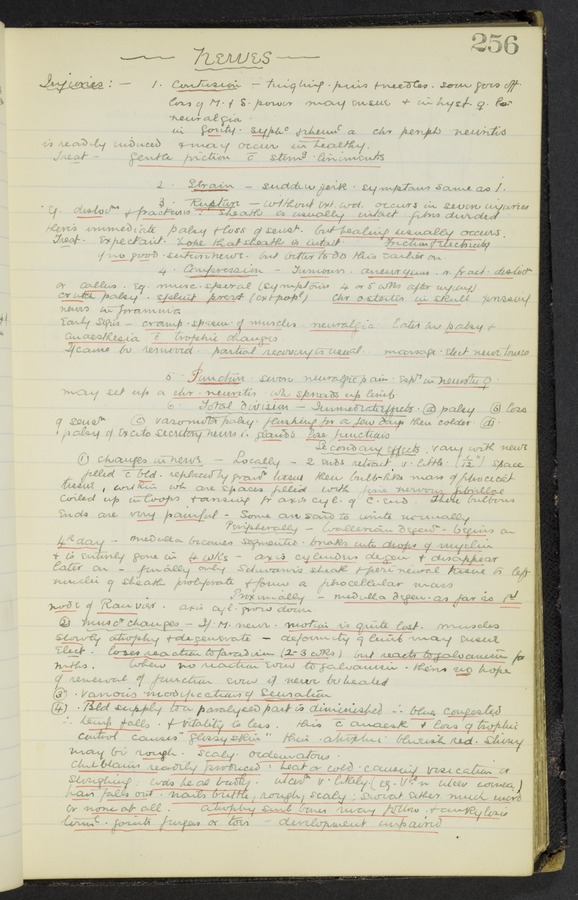 256
NERVES
Injuries :- 1. Contusion - tingling. pins & needles. soon goes off
loss of M. & S. power may ensue & in hyst. q.
neuralgia
in Gouty. Syph^c & rheum^c a chr. periph neuritis
is readily induced & may occur in healthy.
Treat - Gentle friction c̄ stim^g liniments
2. Strain - sudden jerk. symptoms same as 1.
3. Rupture - without ext. wd. occurs in severe injuries
eg. disloc^ns & fractures. Sheath is usually intact fibres divided
there's immediate palsy & loss of sens^n. but healing usually occurs.
Treat. Expectant. Hope that sheath is intact. Friction Electricity
if no good. suture nerve. but better to do this earlier on
4. Compression - Tumour. aneurysm. or fract. disloc^n
or callus. Eg. musc. spiral (symptoms 4 or 5 wks after injury)
crutch palsy. splint press^r (ext pop^l) chr. osteitis in skull pressing
nerves in foramina
Early signs - cramp. spasm of muscles. neuralgia. Later on palsy &
anaesthesia c̄ trophic changes
If cause be removed. partial recovery is usual. massage. elect
5. Puncture. severe neuralgic pain. esp^y in neurotic
may set up a chr. neuritis wh. spreads up limb
6. Total Division - Immediate effects. (a) palsy (b) loss
of sens^n (c) vasomotor palsy. flushing for a few days then colder (d)
palsy of excito secretory nerves. glands lose functions
Secondary effects. vary with nerve
(1) changes in nerve - Locally - 2 ends retract v. little. space
filled c̄ bld. replaced by gran^n tissue then bulb-like mass of fibrocicat
tissue, within wh. are spaces filled with fine nervous fibrillae
coiled up in loops & arising fr axis cyl. of C. end. These bulbous
ends are very painful - Some are said to unite normally
Peripherally - Wallerian degen^n. begins on
4^th day - medulla becomes segmented. breaks into drops of myelin
& is entirely gone in 4 wks - axis cylinders degen & disappear
later on - finally only Schwann's sheath & perineural tissue is left
nuclei of sheath proliferate & form a fibrocellular mass
Proximally - medulla degen. as far as 1^st
node of Ranvier. axis cyl. grow down
(2) Musc^r changes - If M. nerve. motion is quite lost. muscles
slowly atrophy & degenerate - deformity of limb may ensue
Elect. loses reaction to faradism (2-3 wks) but reacts to galvanism for
mths. When no reaction even to galvanism. there's no hope
of renewal of function even if nerve be healed
(3) various modifications of Sensation
(4) Bld supply to a paralysed part is diminished ∴ blue congested
∴ temp falls. & vitality is less. this c̄ anaesth & loss of trophic
control causes "glossy skin" thin. atrophic bluish red. shiny
may be rough. scaly oedematous.
Chilblains readily produced. heat or cold. causing vesication or
sloughing. wds heal badly. ulcer^n v. likely (eg. V^n ulcer cornea)
hair falls out. nails brittle, roughly scaly. sweat either much incrd
or none at all. atrophy and bones may follow. & ankylosis
term^l. joints fingers or toes - development impaired